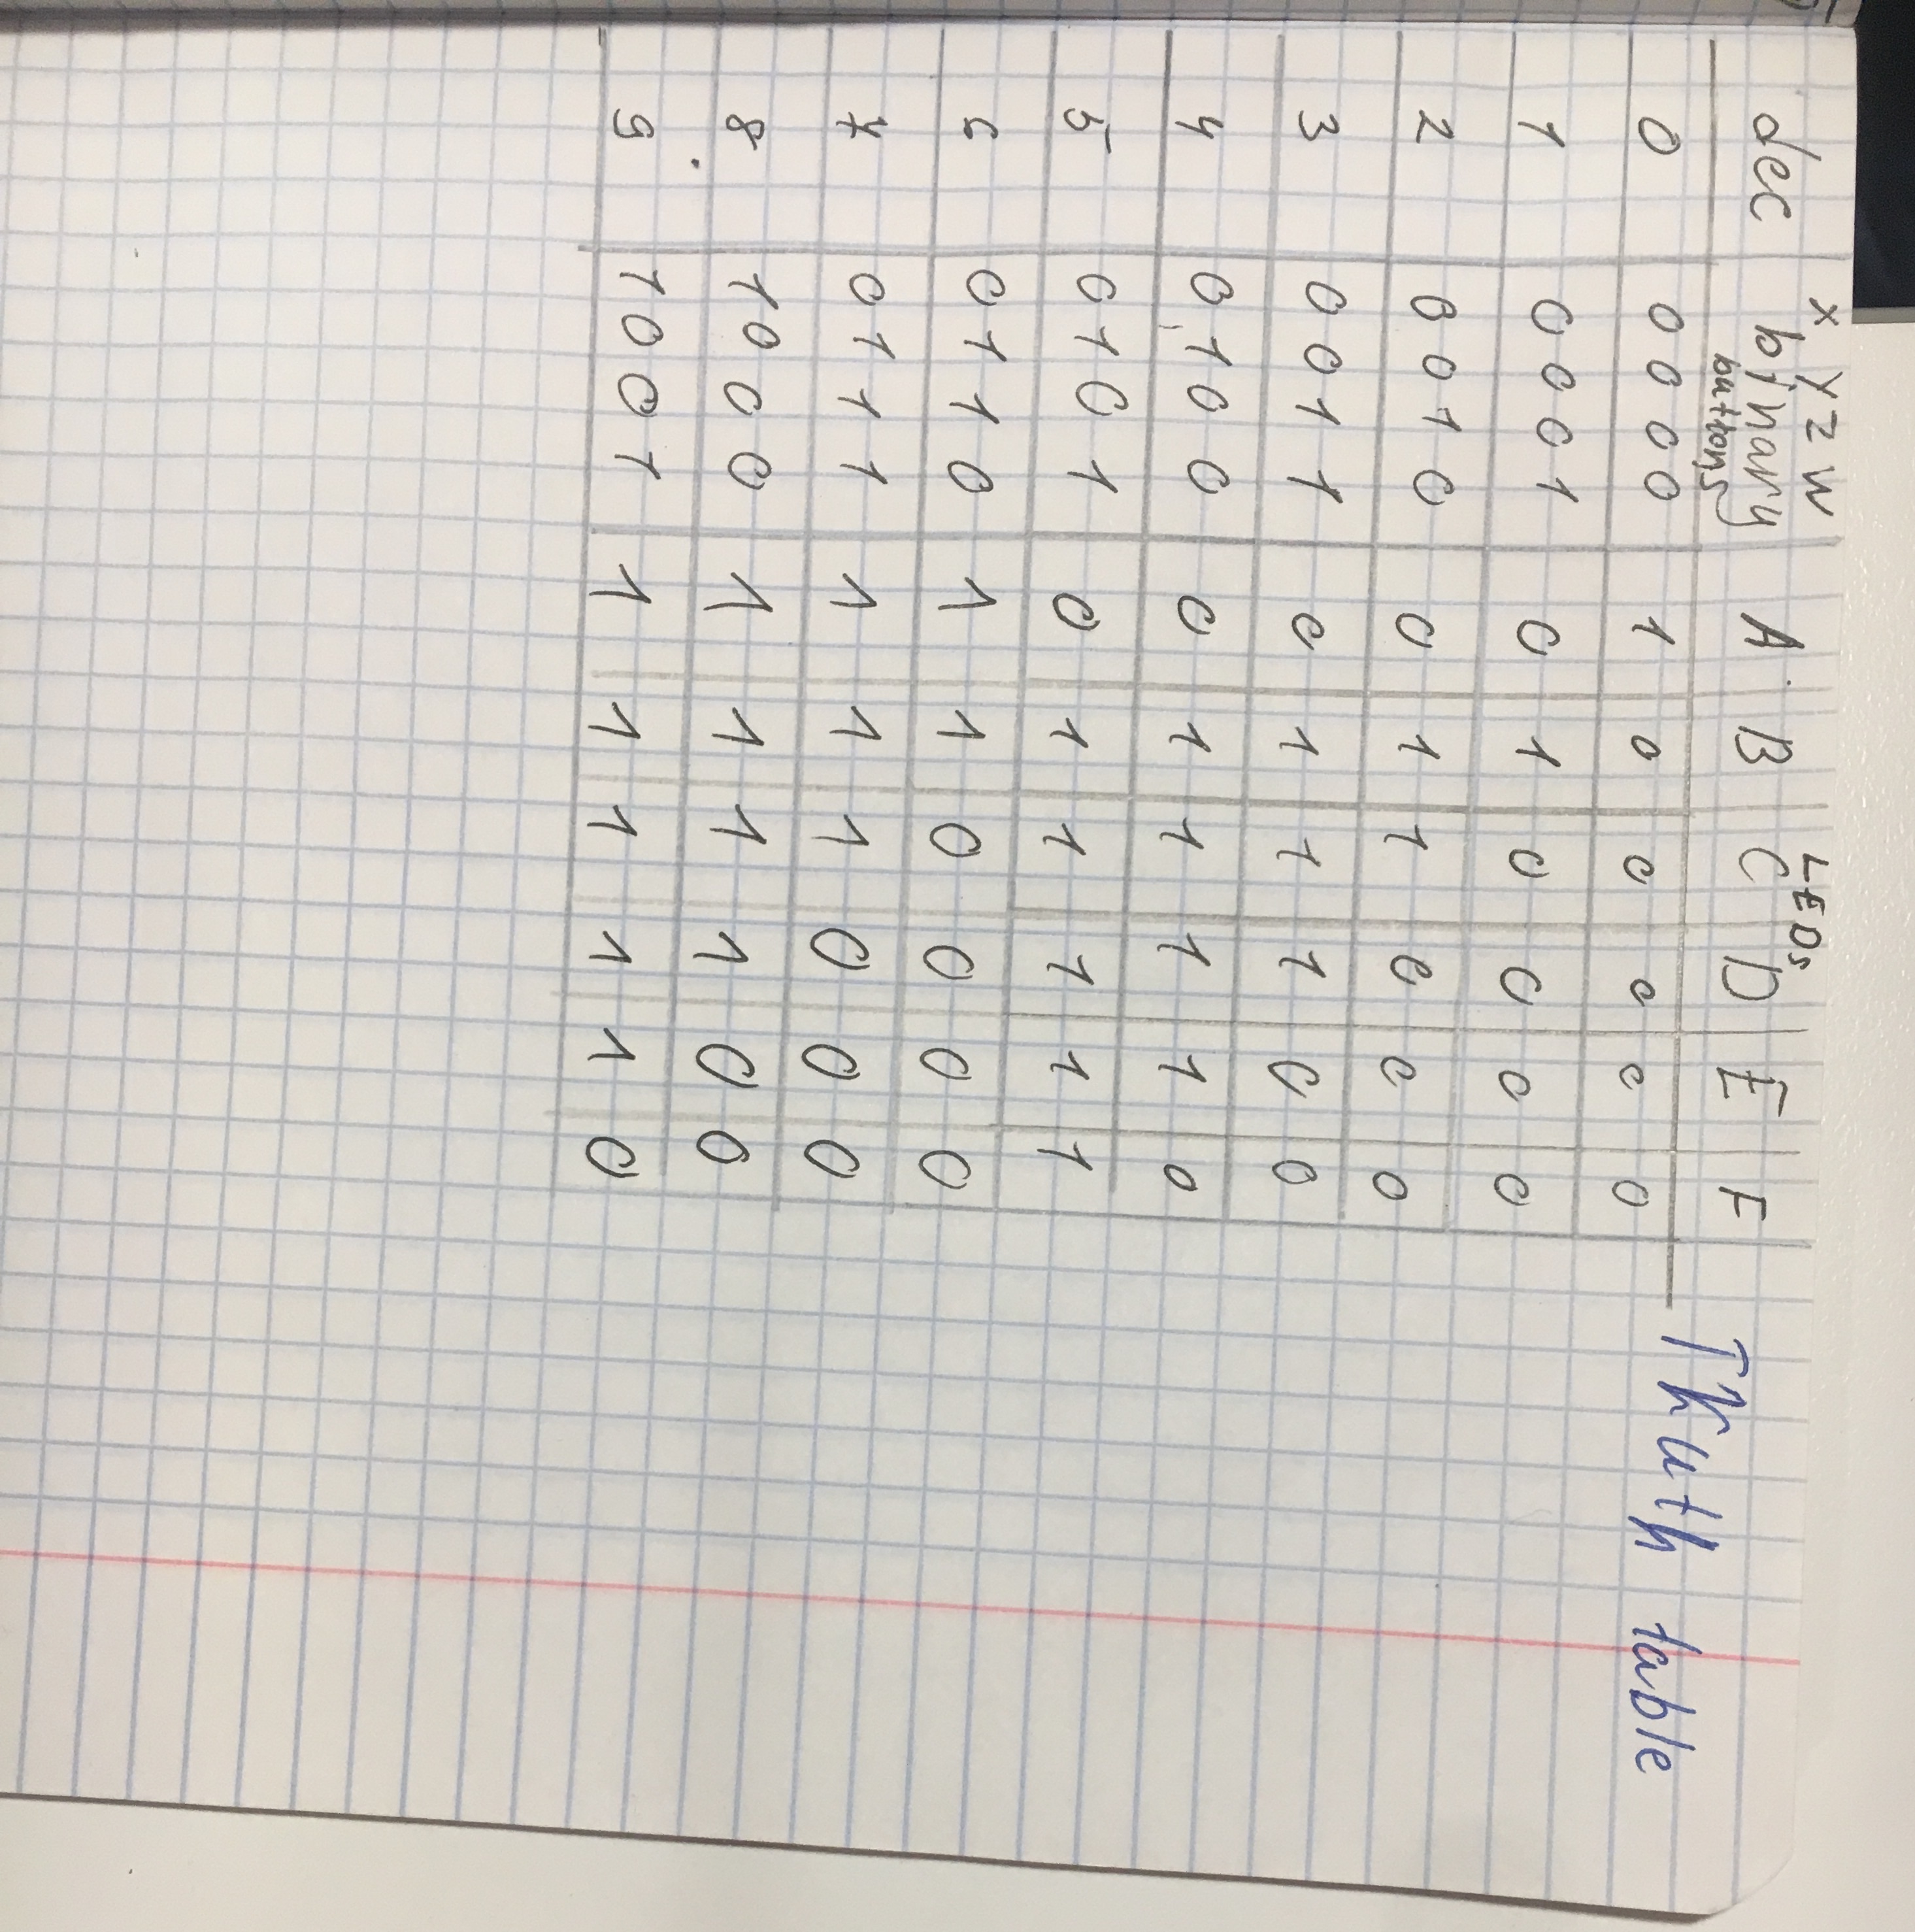 x y z w LEDs
dec binary A B C D E F
buttons
Truth table
0 0 0 0 0 1 0 0 0 0 0
1 0 0 0 1 0 1 0 0 0 0
2 0 0 1 0 0 1 1 0 0 0
3 0 0 1 1 0 1 1 1 0 0
4 0 1 0 0 0 1 1 1 1 0
5 0 1 0 1 0 1 1 1 1 1
6 0 1 1 0 1 1 0 0 0 0
7 0 1 1 1 1 1 1 0 0 0
8 1 0 0 0 1 1 1 1 0 0
9 1 0 0 1 1 1 1 1 1 0